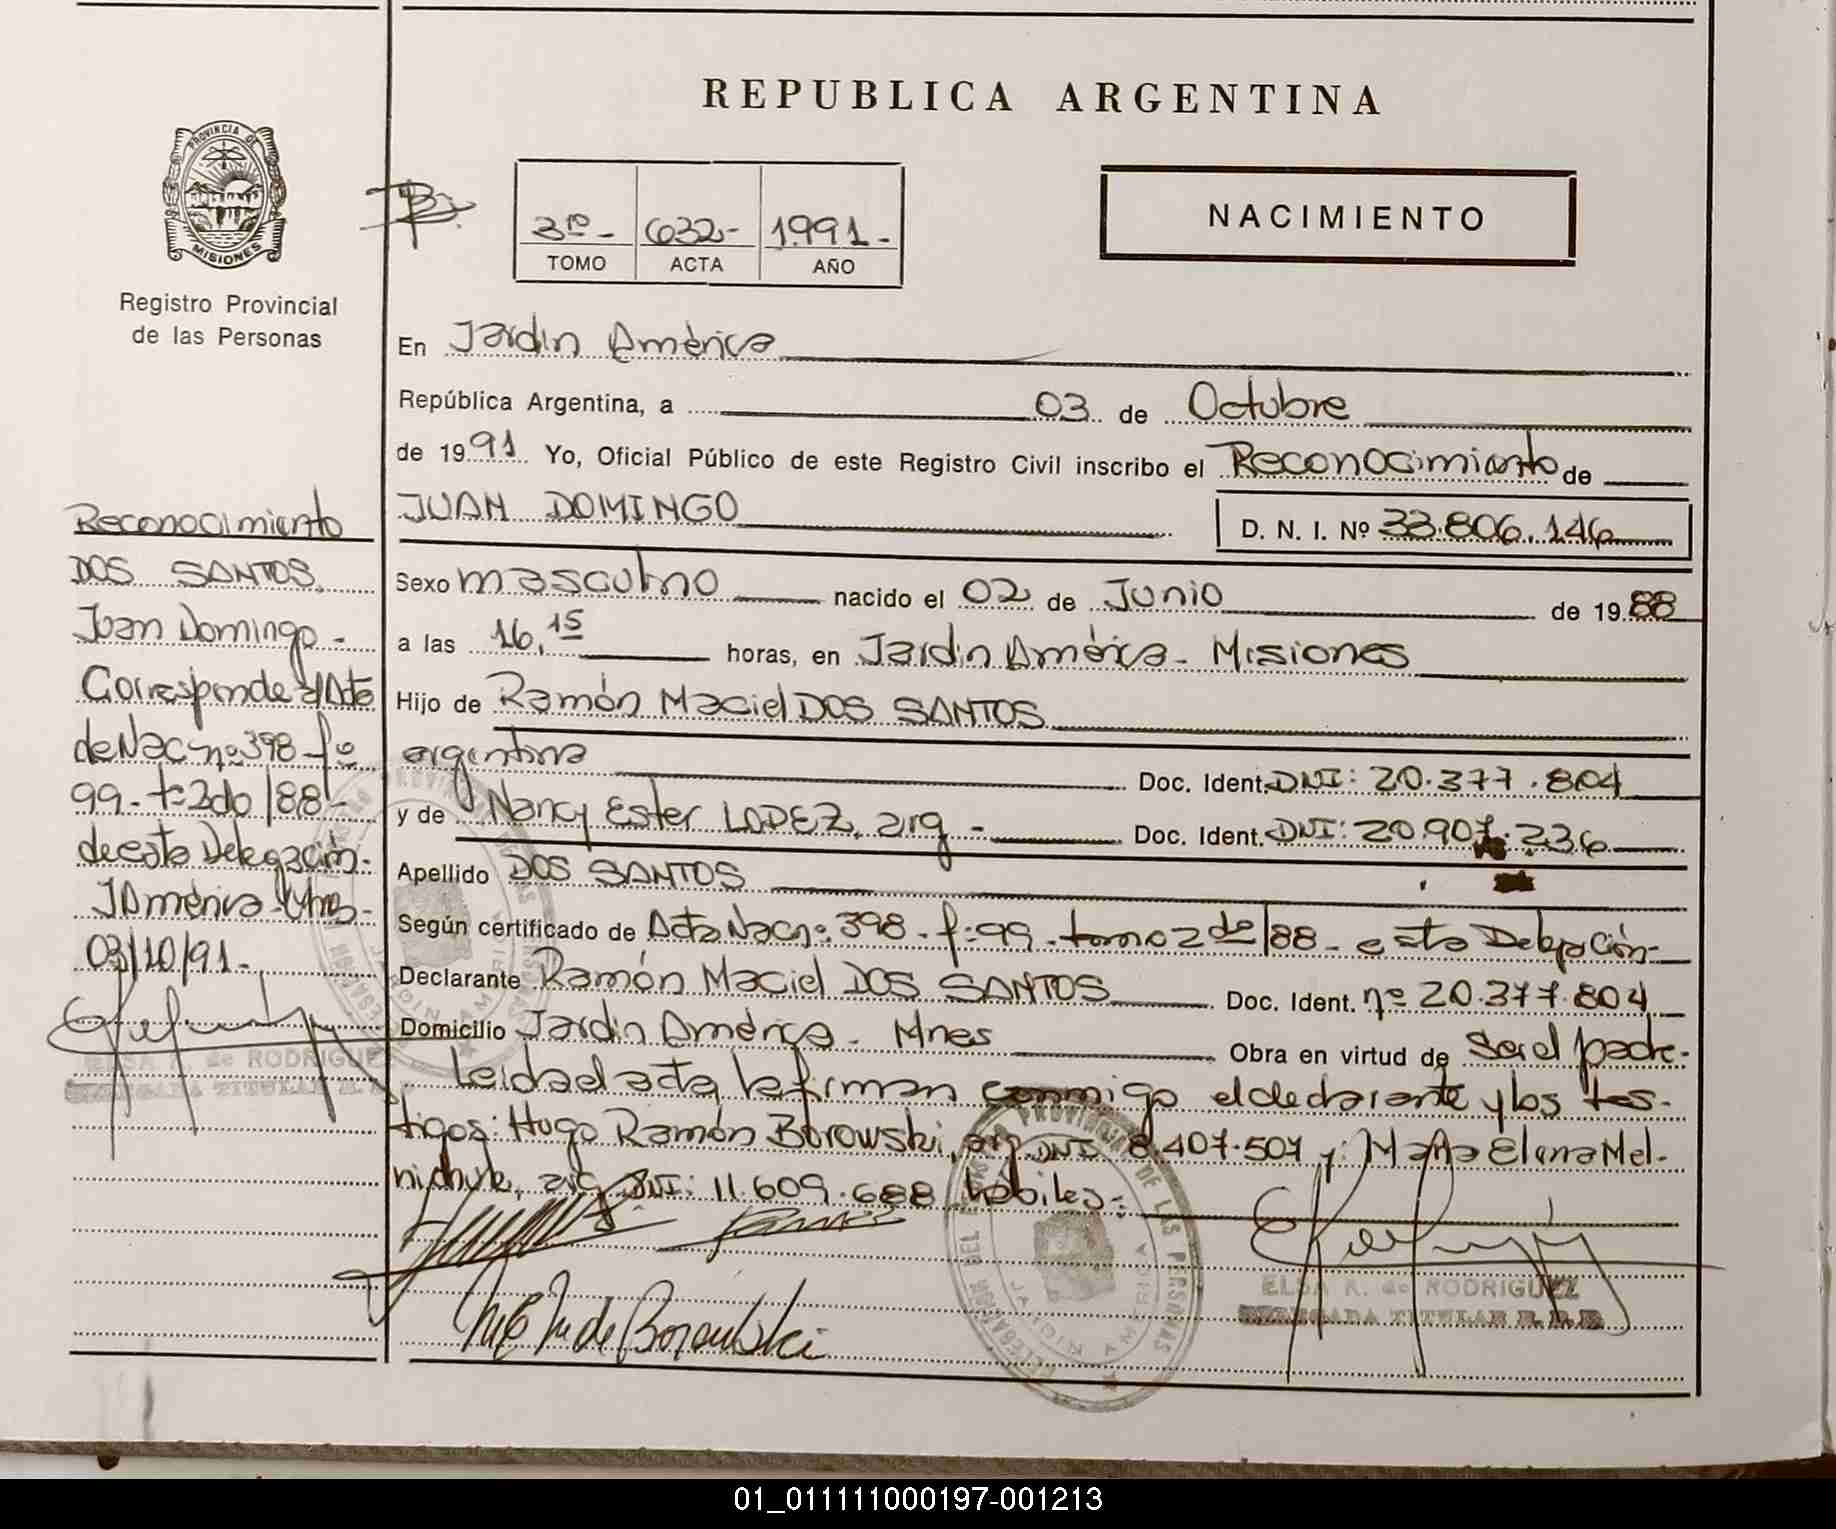 REPUBLICA ARGENTINA
PROVINCIA DE
MISIONES
Registro Provincial
de las Personas
3ro - 632- 1991-
TOMO ACTA AÑO
NACIMIENTO
En Jardín América
República Argentina, a 03 de Octubre
de 1991 Yo, Oficial Público de este Registro Civil inscribo el Reconocimiento de
JUAN DOMINGO
D. N. I. Nº 33.806.146
Sexo masculino nacido el 02 de Junio de 1988
a las 16,15 horas, en Jardín América - Misiones
Hijo de Ramón Maciel DOS SANTOS
argentina Doc. Ident. DNI: 20.377.804
y de Nancy Ester LOPEZ, arg - Doc. Ident. DNI: 20.907.236
Apellido DOS SANTOS
Según certificado de Acta Nac nº 398 - f: 99 - tomo 2do/88 - esta Delegación-
Declarante Ramón Maciel DOS SANTOS Doc. Ident. nº 20.377.804
Domicilio Jardín América - Mnes Obra en virtud de ser el padre-
Leída el acta la firman conmigo el declarante y los tes-
tigos: Hugo Ramón Borowski, arg DNI 8.407.507 y: María Elena Mel-
nichuk, arg DNI: 11.609.688 hábiles.-
Reconocimiento
DOS SANTOS
Juan Domingo -
Corresponde al Acta
de Nac nº 398 - fº
99 - tº 2do/88 -
de esta Delegación -
J América - Mnes -
03/10/91 -
ELSA R. de RODRIGUEZ
DELEGADA TITULAR
ELSA R. de RODRIGUEZ
DELEGADA TITULAR R.P.P.
DELEGACION DEL REGISTRO PROVINCIAL DE LAS PERSONAS
JARDIN AMERICA
de Borowski
01_011111000197-001213